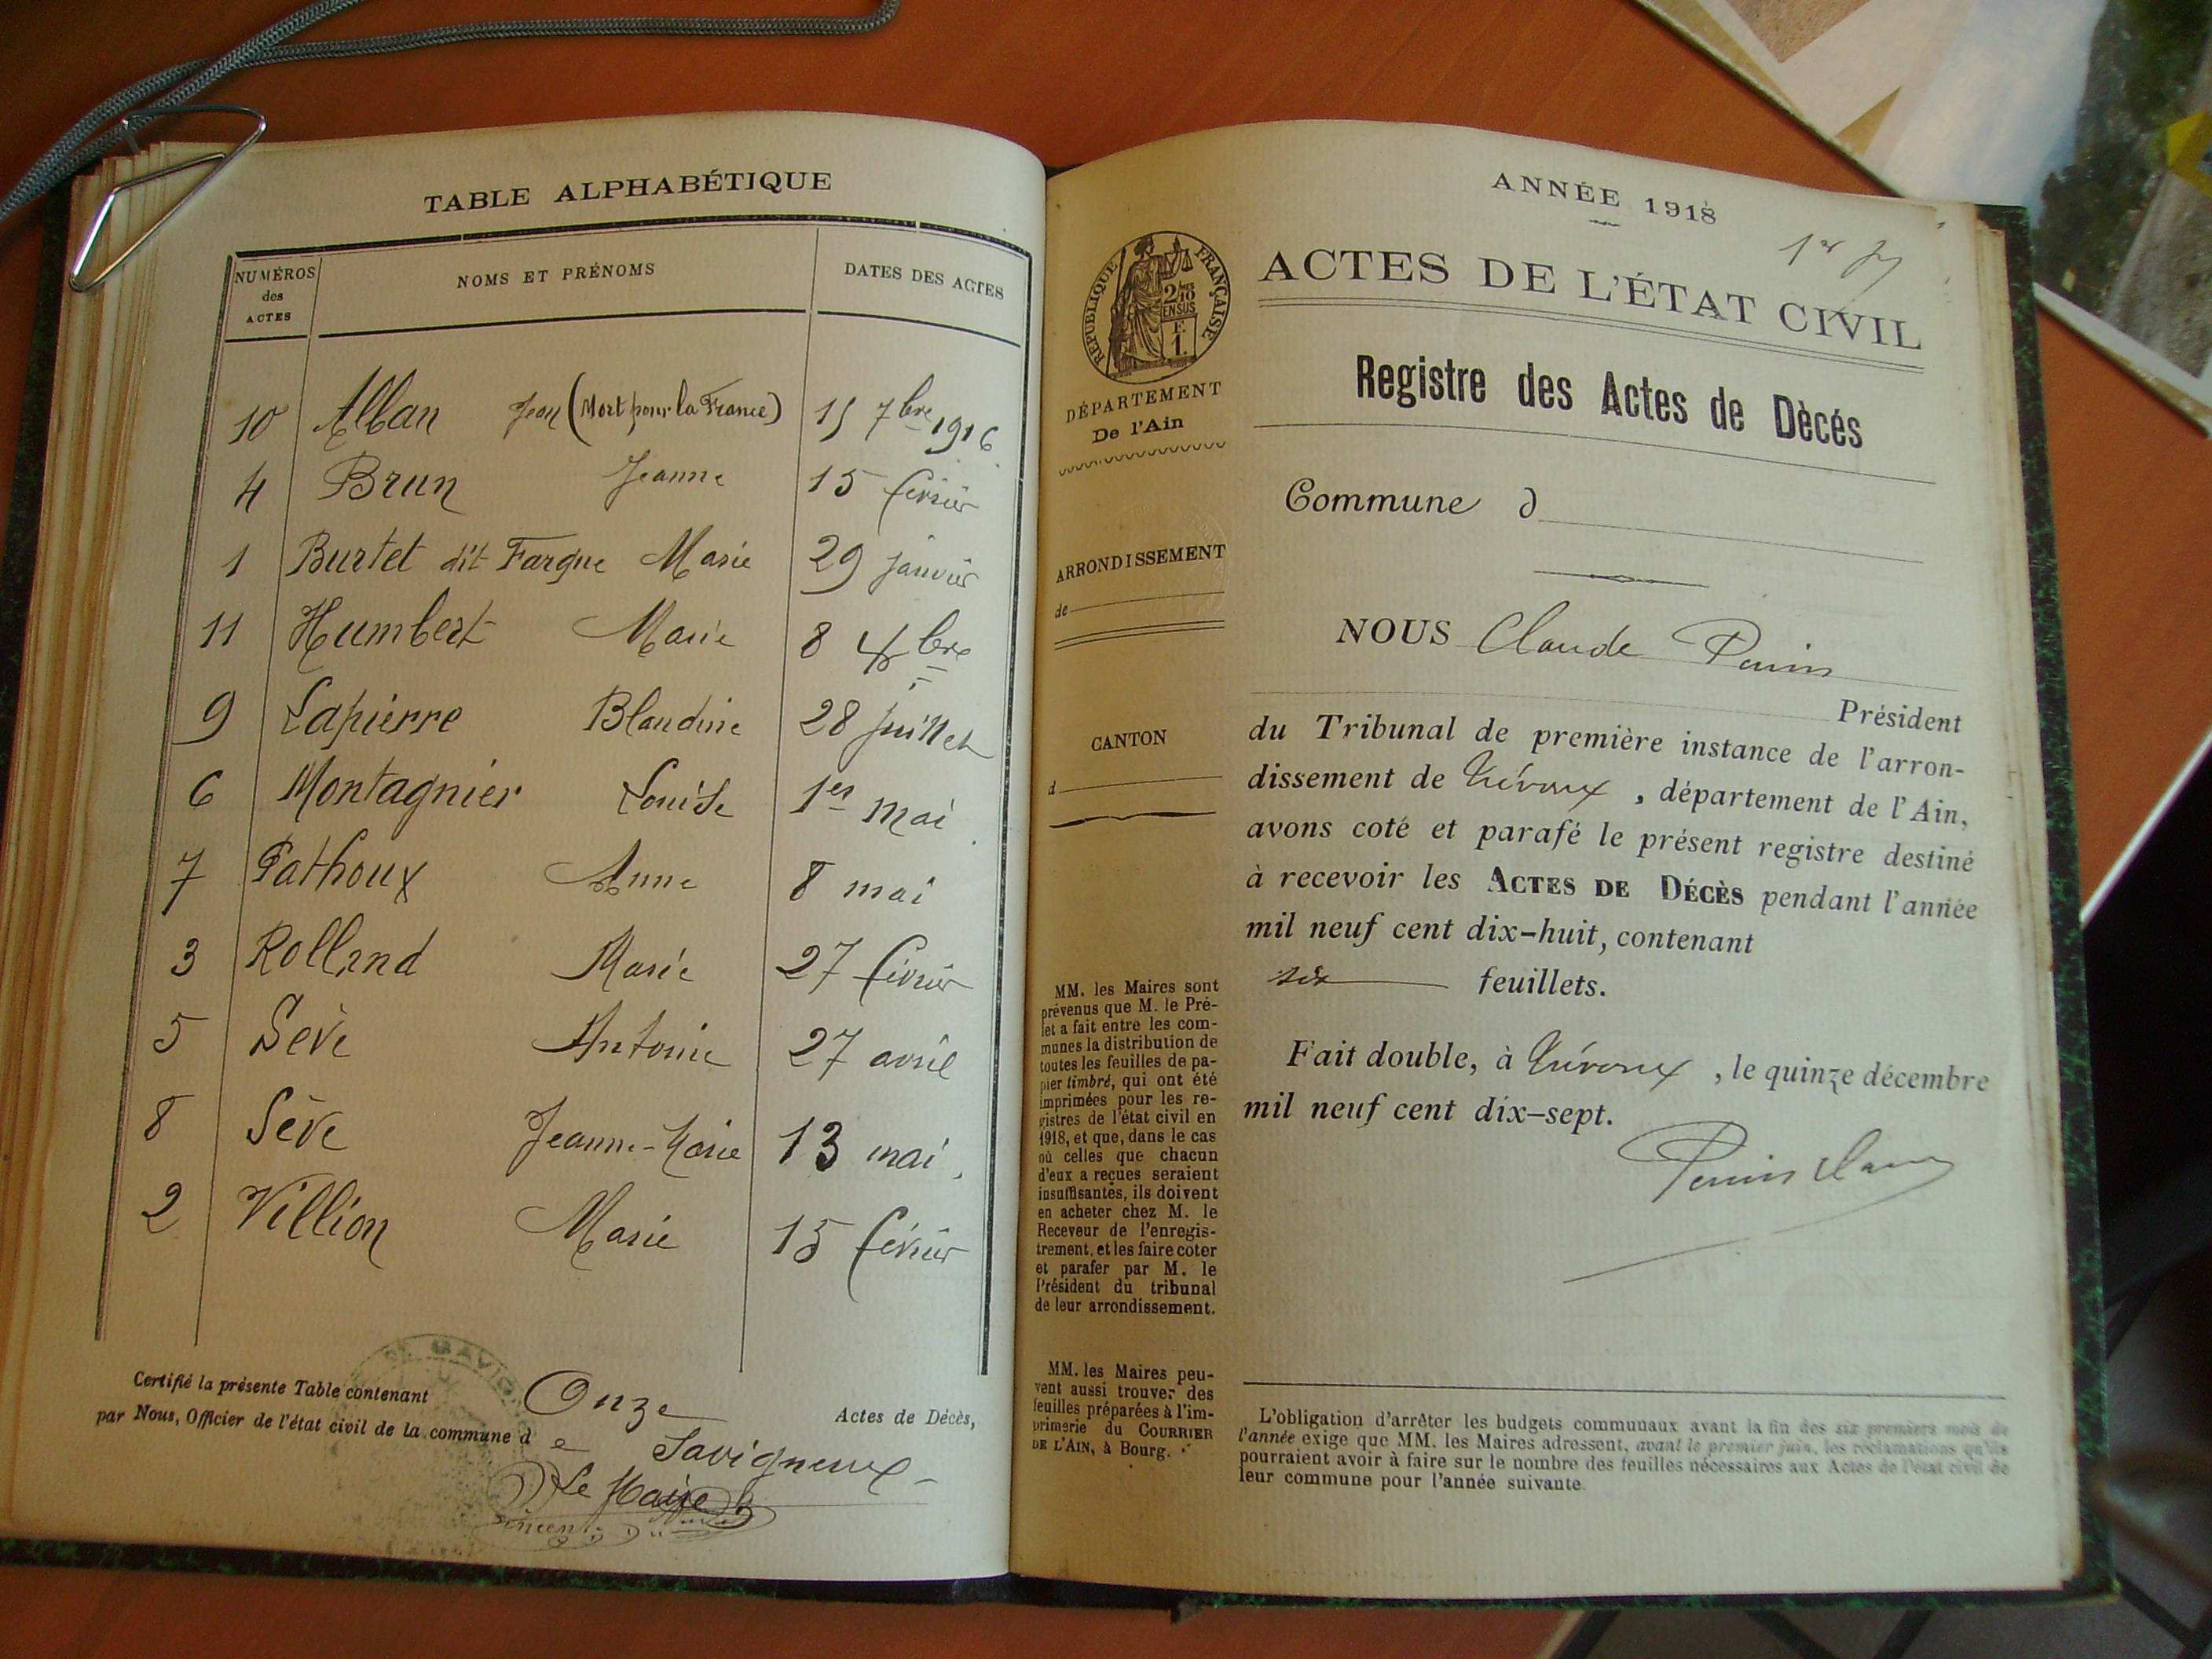 TABLE ALPHABÉTIQUE
NUMÉROS des ACTES NOMS ET PRÉNOMS DATES DES ACTES
10 Alban Jean (Mort pour la France) 15 7bre 1916
4 Brun Jeanne 15 février
1 Burtet dit Fargue Marie 29 janvier
11 Humbert Marie 8 Xbre
9 Lapierre Blandine 28 juillet
6 Montagnier Louise 1er mai
7 Pathoux Anne 8 mai
3 Rolland Marie 27 février
5 Sève Antoine 27 avril
8 Sève Jeanne-Marie 13 mai
2 Villion Marie 15 février
Certifié la présente Table contenant Onze Actes de Décès,
par Nous, Officier de l'état civil de la commune de Savigneux
Le Maire
ANNÉE 1918
1er
ACTES DE L'ÉTAT CIVIL
Registre des Actes de Dècés
RÉPUBLIQUE FRANÇAISE
2/10 EN SUS
F. 1.
DÉPARTEMENT
De l'Ain
ARRONDISSEMENT
de
CANTON
d
MM. les Maires sont
prévenus que M. le Pré-
et a fait entre les com-
munes la distribution de
toutes les feuilles de pa-
pier timbré, qui ont été
imprimées pour les re-
gistres de l'état civil en
1918, et que, dans le cas
où celles que chacun
d'eux a reçues seraient
insuffisantes, ils doivent
en acheter chez M. le
Receveur de l'enregis-
trement, et les faire coter
et parafer par M. le
Président du tribunal
de leur arrondissement.
MM. les Maires peu-
vent aussi trouver des
feuilles préparées à l'im-
primerie du COURRIER
DE L'AIN, à Bourg.
Commune d
NOUS Claude Perrin
Président
du Tribunal de première instance de l'arron-
dissement de Trévoux, département de l'Ain,
avons coté et parafé le présent registre destiné
à recevoir les ACTES DE DÉCÈS pendant l'année
mil neuf cent dix-huit, contenant
six feuillets.
Fait double, à Trévoux, le quinze décembre
mil neuf cent dix-sept.
Perrin
L'obligation d'arrêter les budgets communaux avant la fin des six premiers mois de
l'année exige que MM. les Maires adressent, avant le premier juin, les réclamations qu'ils
pourraient avoir à faire sur le nombre des feuilles nécessaires aux Actes de l'état civil de
leur commune pour l'année suivante.